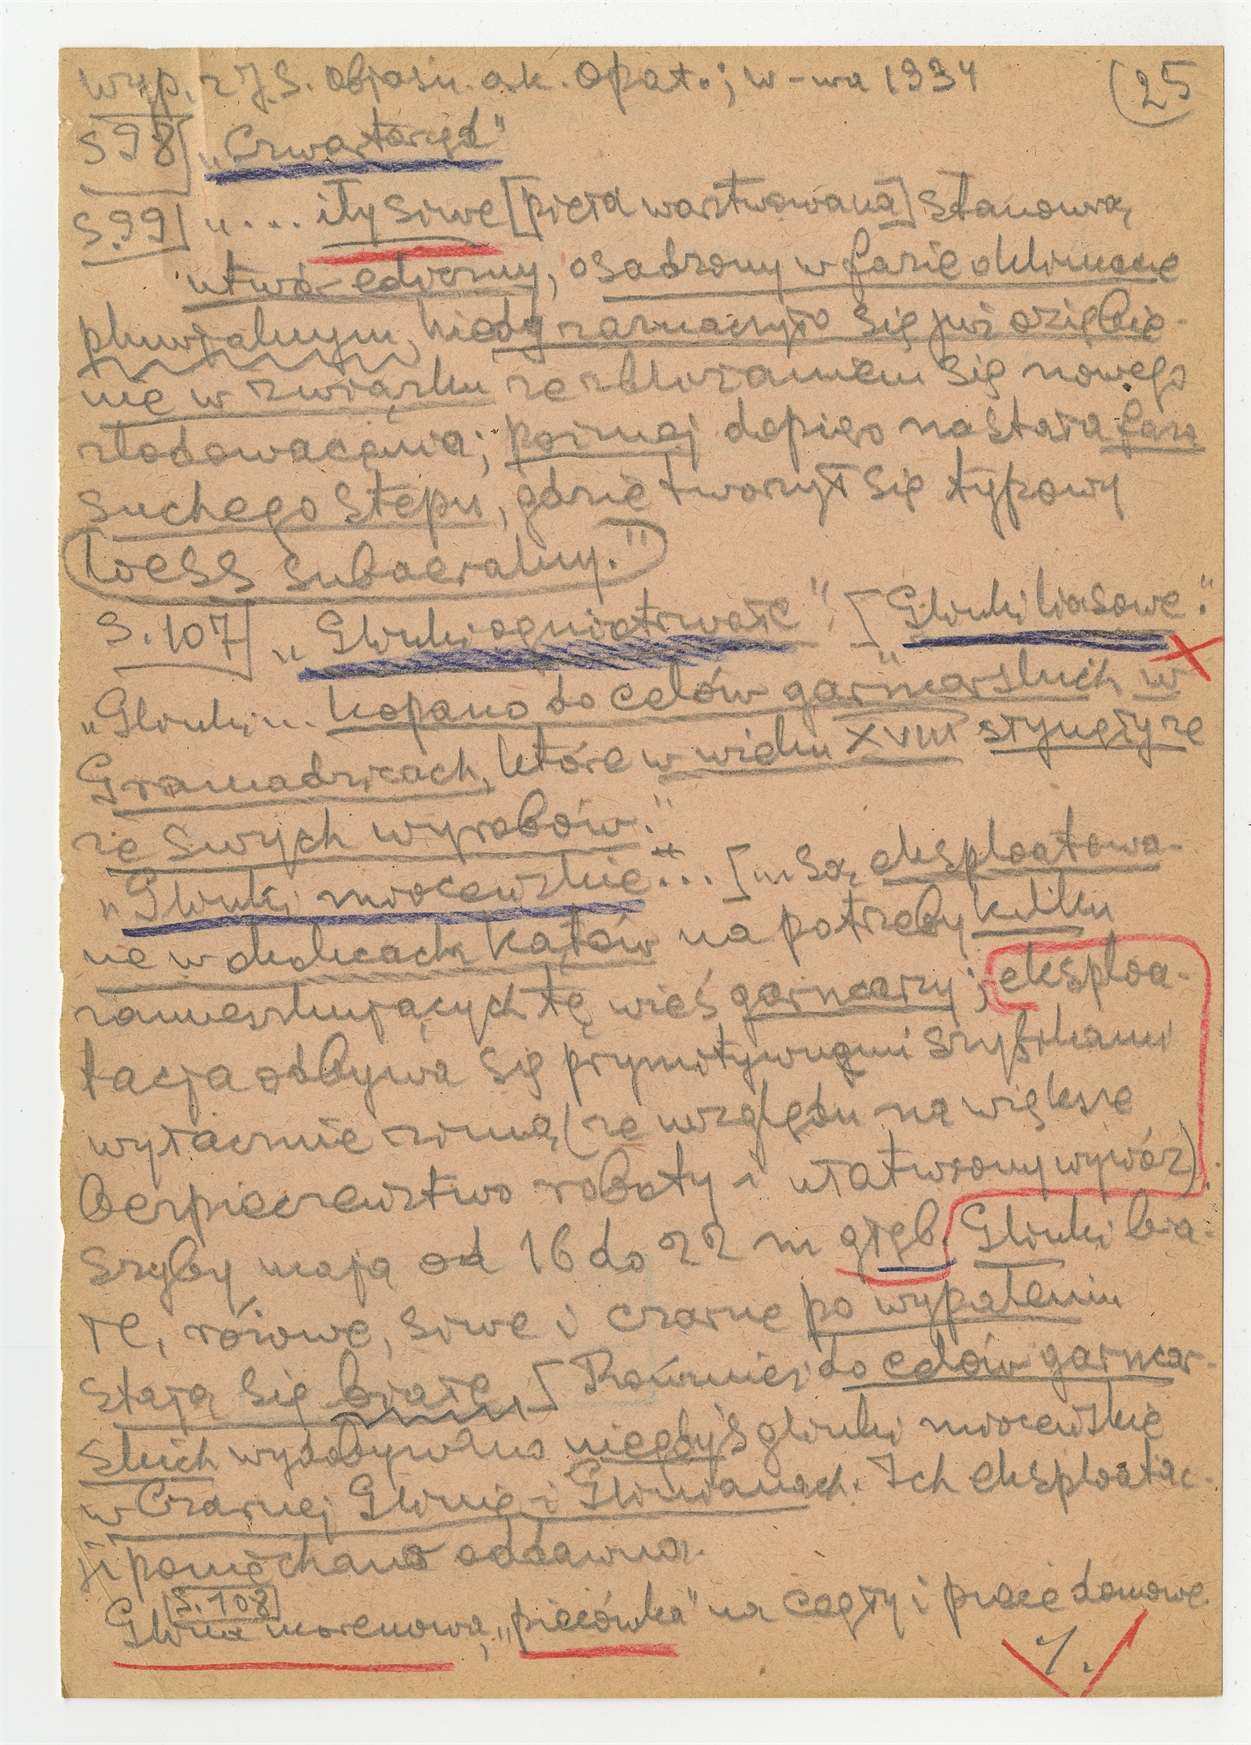 wyp. z J.S. objaśn. ark. Opat.; W-wa 1934 (25
S 98] „Czwartorzęd"
S.99] „... iły siwe [pięta warstwowana] stanowią
utwór edoiczny, osadzony w fazie o klimacie
pluwjalnym, kiedy zaznaczyło się już oziębie-
nie w związku ze zbliżaniem się nowego
zlodowacenia; później dopiero nastała faza
suchego stepu, gdzie tworzył się typowy
loess subaeralny."
S.107] „Glinki ogniotrwałe". [Glinki liasowe."
„Glinki... kopano do celów garncarskich w
Gromadzicach, które w wieku XVIII słynęły ze
ze swych wyrobów."
„Glinki miocenskie"... [„ są eksploatowa-
ne w okolicach Kątów na potrzeby kilku
zamieszkujących tę wieś garncarzy; eksploa-
tacja odbywa się prymitywnymi szybikami
wyłącznie zimą (ze względu na większe
bezpieczeństwo roboty i ułatwiony wywóz).
Szyby mają od 16 do 22 m głęb. Glinki bia-
łe, różowe, siwe i czarne po wypaleniu
stają się białe. [Również do celów garncar-
skich wydobywano niegdyś glinki mioceńskie
w Czarnej Glinie i Glinianach. Ich eksploatac-
ji poniechano oddawna.
[S.108]
Glina morenowa, „piecówka" na cegły i piece domowe.
%.